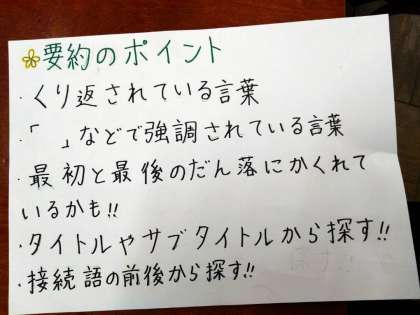 要約のポイント
・くり返されている言葉
・「　」などで強調されている言葉
・最初と最後のだん落にかくれて
いるかも!!
・タイトルやサブタイトルから探す!!
・接続語の前後から探す!!